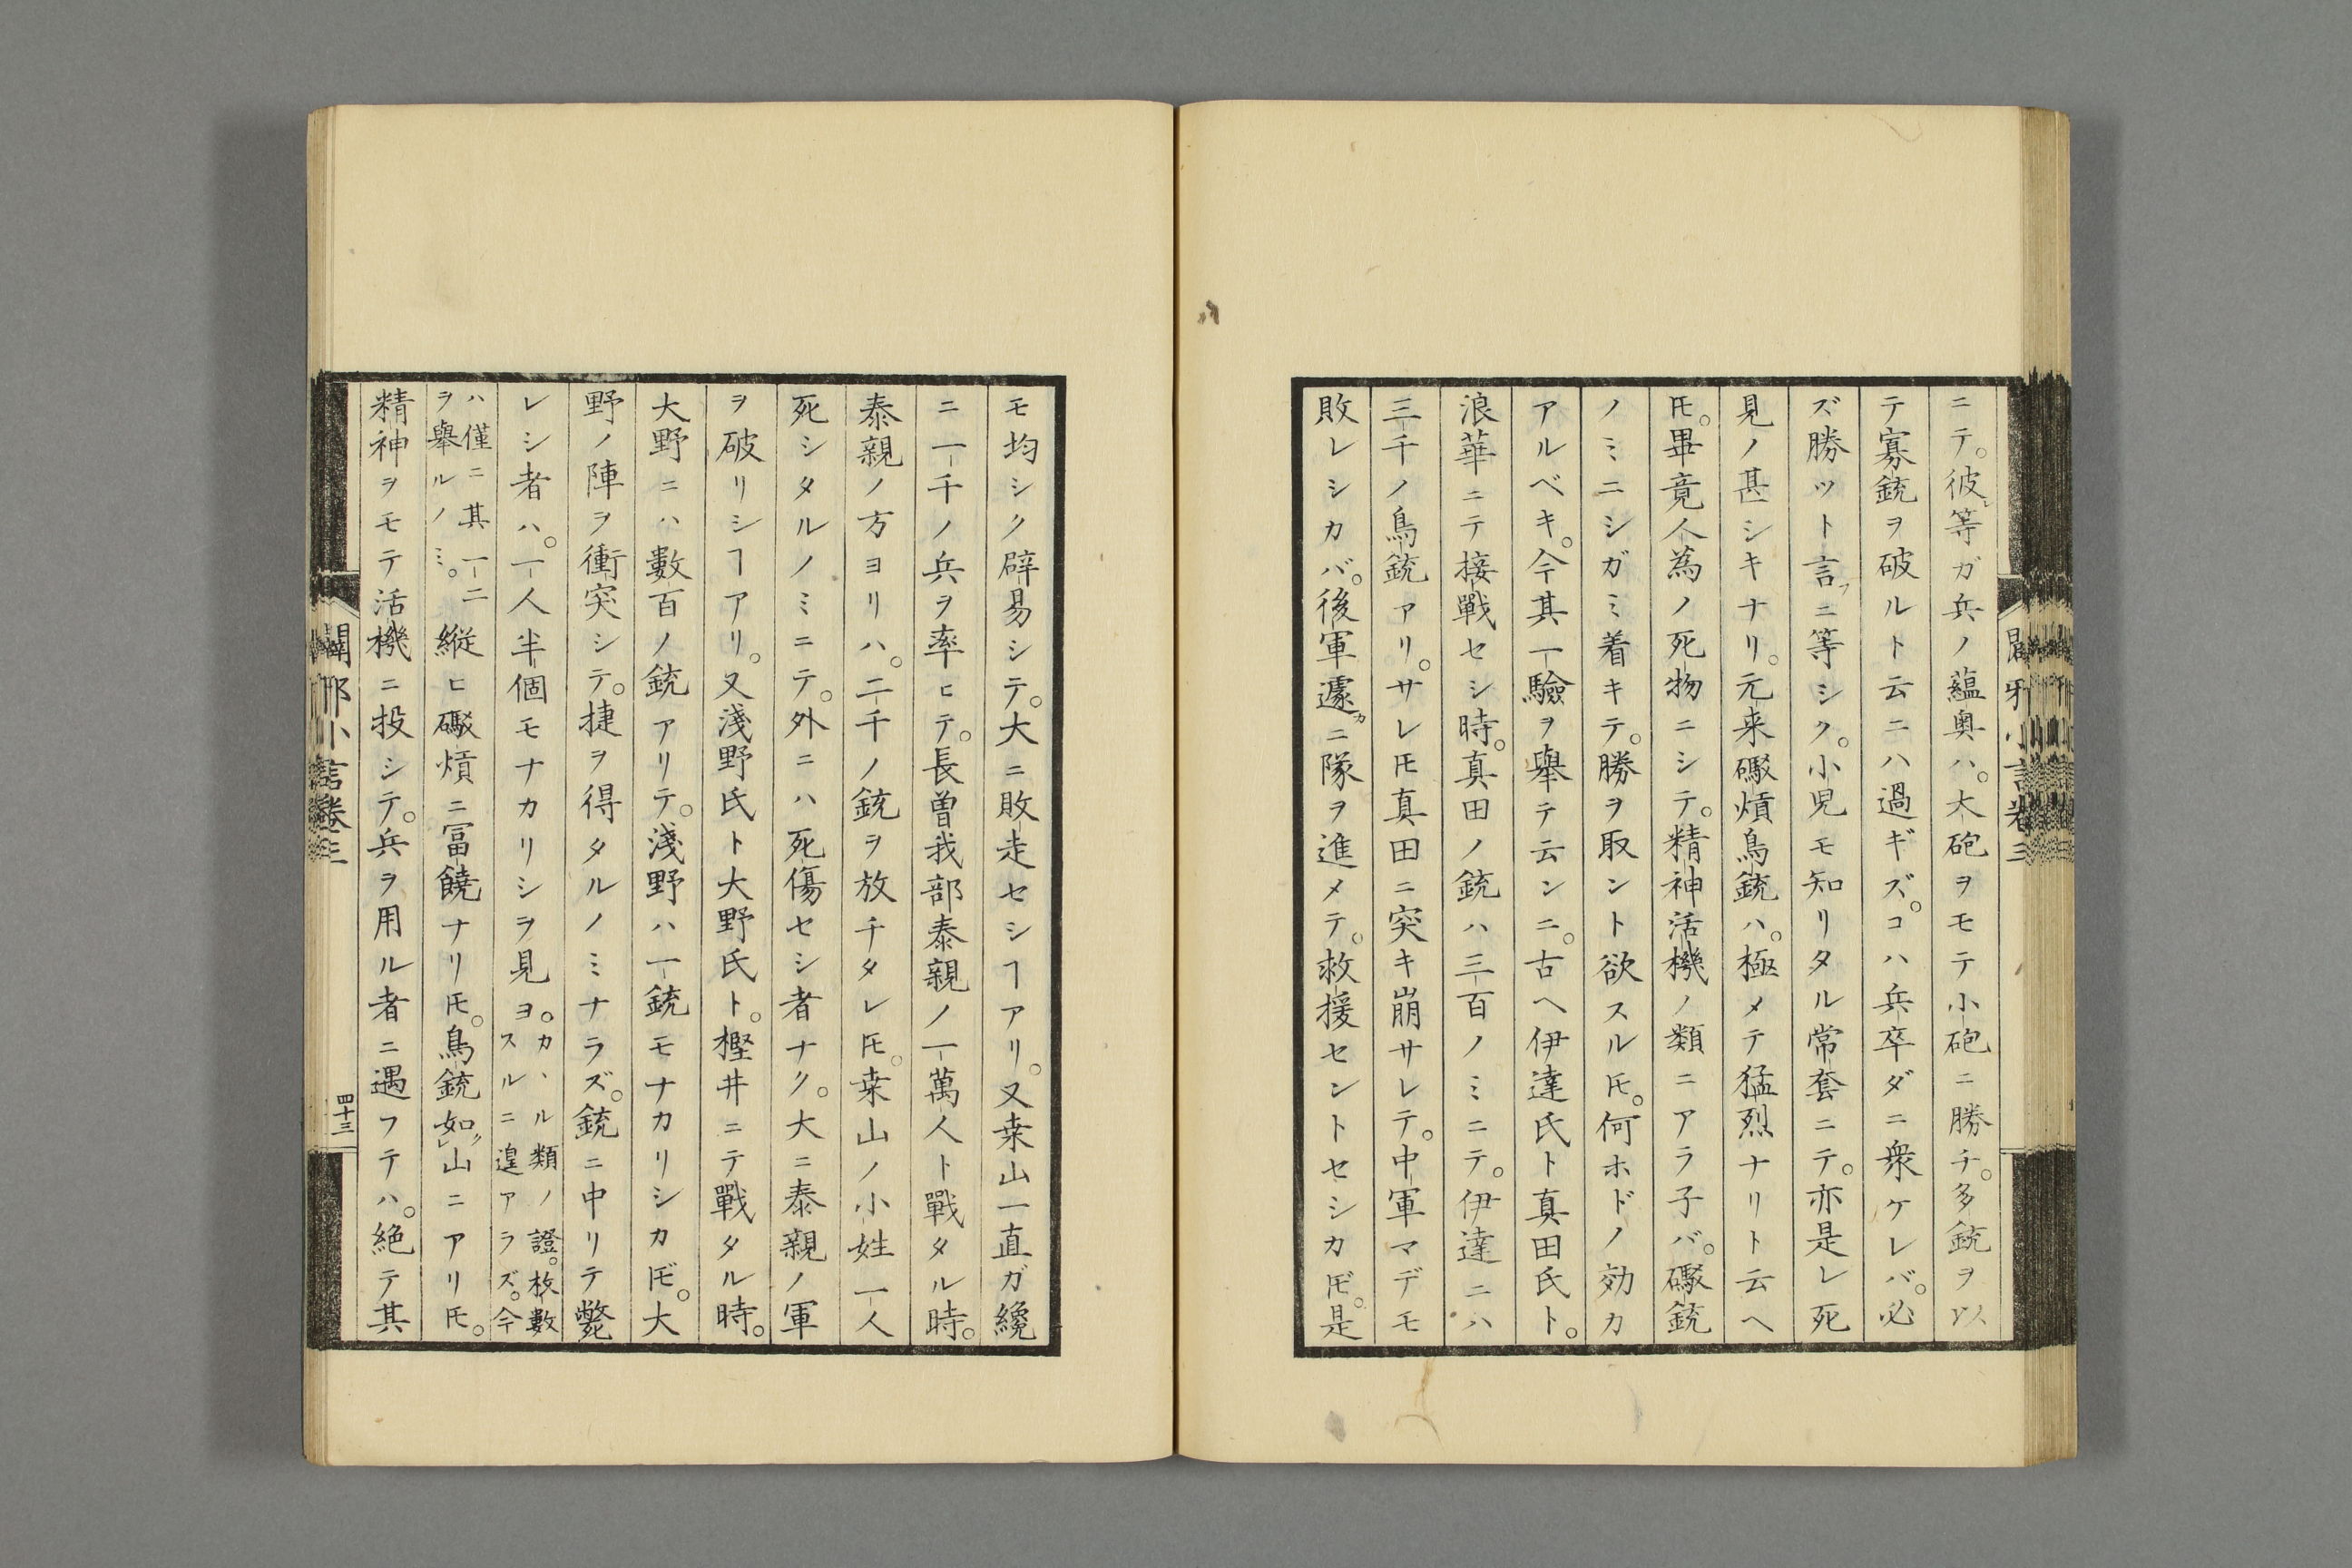 ニテ。彼レ等ガ兵ノ蘊奥ハ。大砲ヲモテ小砲ニ勝チ。多銃ヲ以
テ寡銃ヲ破ルト云ニハ過ギズ。コハ兵卒ダニ衆ケレバ。必
ズ勝ツト言フニ等シク。小児モ知リタル常套ニテ。亦是レ死
見ノ甚シキナリ。元来礮熕鳥銃ハ。極メテ猛烈ナリト云ヘ
𪜈。畢竟人為ノ死物ニシテ。精神活機ノ類ニアラ子バ。礮銃
ノミニシガミ着キテ。勝ヲ取ント欲スル𪜈。何ホドノ効カ
アルベキ。今其一驗ヲ舉テ云ンニ。古ヘ伊達氏ト真田氏ト。
浪華ニテ接戰セシ時。真田ノ銃ハ三百ノミニテ。伊達ニハ
三千ノ鳥銃アリ。サレ𪜈真田ニ突キ崩サレテ。中軍マデモ
敗レシカバ。後軍遽カニ隊ヲ進メテ。救援セントセシカ𪜈。是
モ均シク辟易シテ。大ニ敗走セシヿアリ。又桒山一直ガ纔
ニ一千ノ兵ヲ率ヒテ。長曽我部泰親ノ一萬人ト戰タル時。
泰親ノ方ヨリハ。二千ノ銃ヲ放チタレ𪜈。桒山ノ小姓一人
死シタルノミニテ。外ニハ死傷セシ者ナク。大ニ泰親ノ軍
ヲ破リシヿアリ。又淺野氏ト大野氏ト。樫井ニテ戰タル時。
大野ニハ數百ノ銃アリテ。淺野ハ一銃モナカリシカ𪜈。大
野ノ陣ヲ衝突シテ。捷ヲ得タルノミナラズ。銃ニ中リテ斃
レシ者ハ。一人半個モナカリシヲ見ヨ。カヽル類ノ證。枚數スルニ遑アラズ。今
ハ僅ニ其一二ヲ舉ルノミ。縦ヒ礮熕ニ冨饒ナリ𪜈。鳥銃如レク山ニアリ𪜈。
精神ヲモテ活機ニ投シテ。兵ヲ用ル者ニ遇フテハ。絶テ其
闢邪小言卷三
四十三